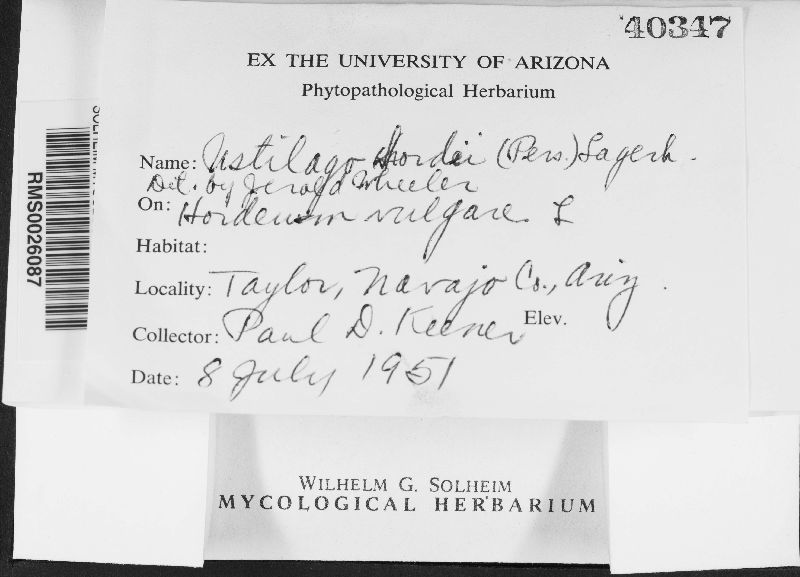 40347
EX THE UNIVERSITY OF ARIZONA
Phytopathological Herbarium
Name: Ustilago Hordei (Pers.) Lagerh.
Det. by Jerold Wheeler
On: Hordeum vulgare L
Habitat:
Locality: Taylor, Navajo Co., Ariz.
Elev.
Collector: Paul D. Keener
Date: 8 July 1951
RMS0026087
WILHELM G. SOLHEIM
MYCOLOGICAL HERBARIUM